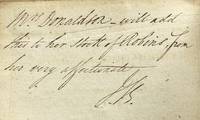 Mrs Donaldson - will add
this to her Stock of Robins, from
her very affectionate
JB.